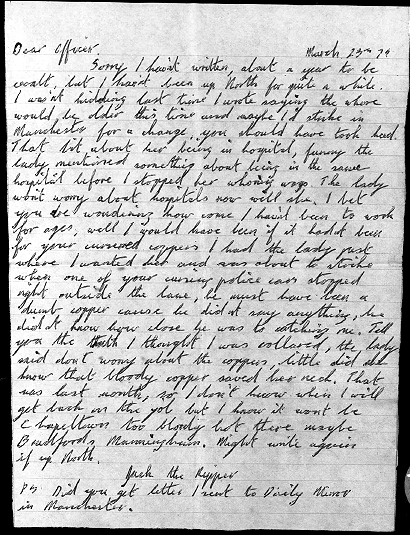 Dear Officer,
March 23rd 79
Sorry I havn't written, about a year to be
exact, but I hav'nt been up North for quite a while.
I was'nt kidding last time I wrote saying the whore
would be older this time and maybe I'd strike in
Manchester for a change, you should have took heed.
That bit about her being in hospital, funny the
lady mentioned something about being in the same
hospital before I stopped her whoring ways. The lady
wont worry about hospitals now will she. I bet
you are wondering how come I hav'nt been to work
for ages, well I would have been if it hadnt been
for your cursed coppers I had the lady just
where I wanted her and was about to strike
when one of your cursing police cars stopped
right outside the lane, he must have been a
dumb copper cause he did'nt say anything, he
did'nt know how close he was to catching me. Tell
you the truth I thought I was collared, the lady
said dont worry about the coppers, little did she
know that bloody copper saved her neck. That
was last month, so I don't know when I will
get back on the job but I know it wont be
Chapeltown too bloody hot there maybe
Bradfords Manningham. Might write again
if up North.
Jack the Ripper
PS Did you get letter I sent to Daily Mirror
in Manchester.